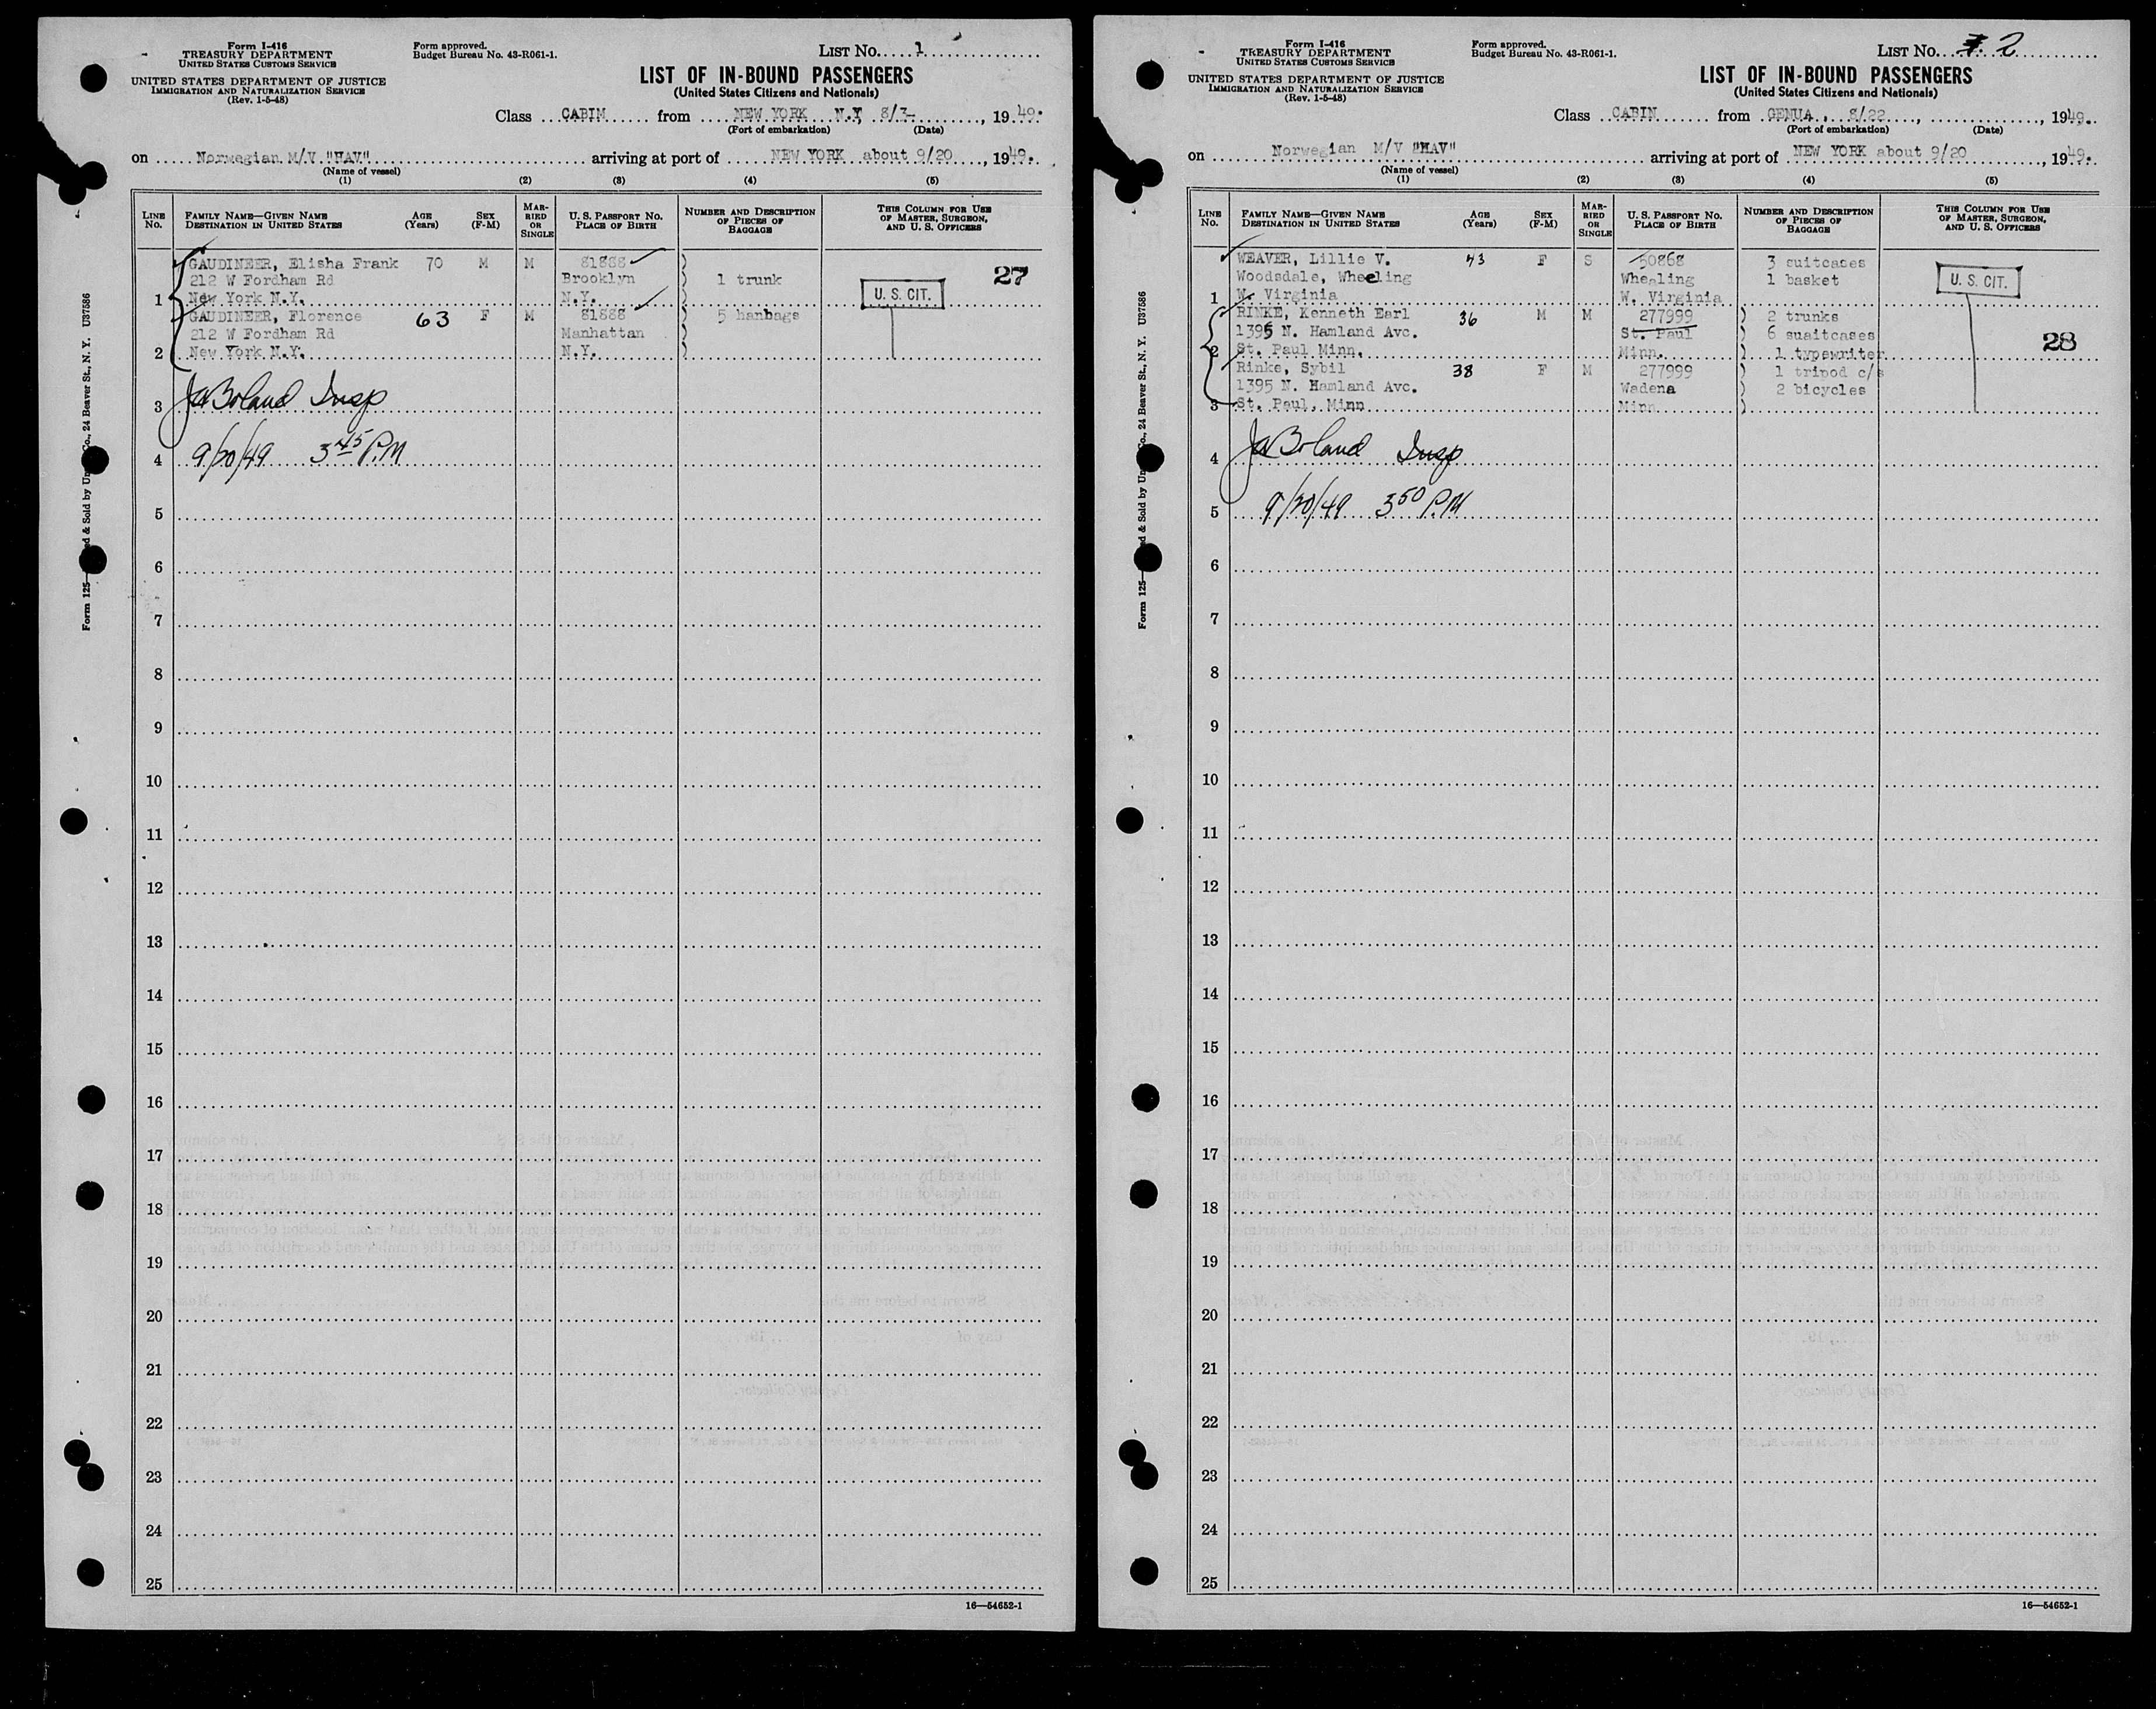 Form I-416
TREASURY DEPARTMENT
UNITED STATES CUSTOMS SERVICE
UNITED STATES DEPARTMENT OF JUSTICE
IMMIGRATION AND NATURALIZATION SERVICE
(Rev. 1-5-48)
Form approved.
Budget Bureau No. 43-R061-1.
LIST No. 1
LIST OF IN-BOUND PASSENGERS
(United States Citizens and Nationals)
Class CABIM from NEW YORK N.Y, 8/3-, 1949.
(Port of embarkation) (Date)
on Norwegian M/V "HAV" arriving at port of NEW YORK about 9/20, 1949.
(Name of vessel)
(1) (2) (3) (4) (5)
LINE No. FAMILY NAME—GIVEN NAME DESTINATION IN UNITED STATES AGE (Years) SEX (F-M) MARRIED OR SINGLE U. S. PASSPORT NO. PLACE OF BIRTH NUMBER AND DESCRIPTION OF PIECES OF BAGGAGE THIS COLUMN FOR USE OF MASTER, SURGEON, AND U. S. OFFICERS
GAUDINEER, Elisha Frank 70 M M 81888 ) 27
212 W Fordham Rd Brooklyn ) 1 trunk
1 New York N.Y. N.Y. ) U. S. CIT.
GAUDINEER, Florence 63 F M 81888 ) 5 hanbags
212 W Fordham Rd Manhattan )
2 New York N.Y. N.Y. )
3 JaBoland Insp
4 9/20/49 3 45 P.M
5
6
7
8
9
10
11
12
13
14
15
16
17
18
19
20
21
22
23
24
25
16—54652-1
Form 125— ed & Sold by Un Co., 24 Beaver St., N. Y. U37586
Form I-416
TREASURY DEPARTMENT
UNITED STATES CUSTOMS SERVICE
UNITED STATES DEPARTMENT OF JUSTICE
IMMIGRATION AND NATURALIZATION SERVICE
(Rev. 1-5-48)
Form approved.
Budget Bureau No. 43-R061-1.
LIST No. 2
LIST OF IN-BOUND PASSENGERS
(United States Citizens and Nationals)
Class CABIN from GENUA, 8/22, 1949.
(Port of embarkation) (Date)
on Norwegian M/V "HAV" arriving at port of NEW YORK about 9/20, 1949.
(Name of vessel)
(1) (2) (3) (4) (5)
LINE No. FAMILY NAME—GIVEN NAME DESTINATION IN UNITED STATES AGE (Years) SEX (F-M) MARRIED OR SINGLE U. S. PASSPORT NO. PLACE OF BIRTH NUMBER AND DESCRIPTION OF PIECES OF BAGGAGE THIS COLUMN FOR USE OF MASTER, SURGEON, AND U. S. OFFICERS
WEAVER, Lillie V. 43 F S 50868 3 suitcases
Woodsdale, Wheeling Wheeling 1 basket U. S. CIT.
1 W. Virginia W. Virginia
RINKE, Kenneth Earl 36 M M 277999 ) 2 trunks
1395 N. Hamland Avc. St. Paul ) 6 suaitcases 28
2 St. Paul Minn. Minn. ) 1 typewriter
Rinke, Sybil 38 F M 277999 ) 1 tripod c/s
1395 N. Hamland Avc. Wadena ) 2 bicycles
3 St. Paul, Minn Minn )
4 JaBoland Insp
5 9/20/49 3 50 P.M
6
7
8
9
10
11
12
13
14
15
16
17
18
19
20
21
22
23
24
25
16—54652-1
Form 125— ed & Sold by Un Co., 24 Beaver St., N. Y. U37586